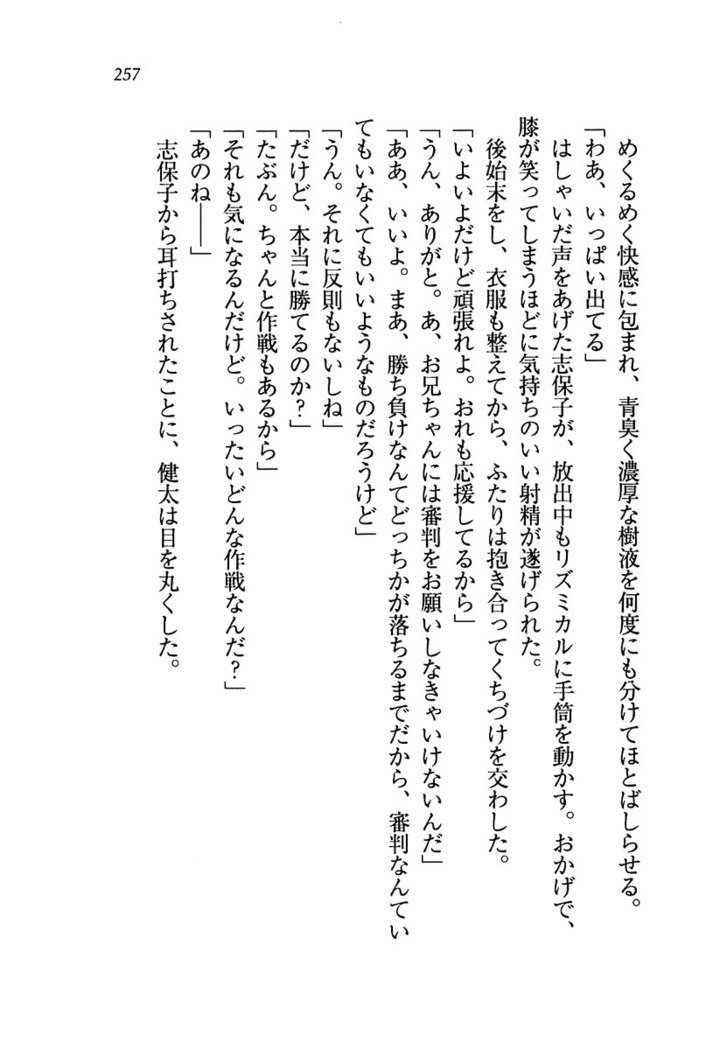 257
めくるめく快感に包まれ、青臭く濃厚な樹液を何度にも分けてほとばしらせる。
「わあ、いっぱい出てる」
はしゃいだ声をあげた志保子が、放出中もリズミカルに手筒を動かす。おかげで、
膝が笑ってしまうほどに気持ちのいい射精が遂げられた。
後始末をし、衣服も整えてから、ふたりは抱き合ってくちづけを交わした。
「いよいよだけど頑張れよ。おれも応援してるから」
「うん、ありがと。あ、お兄ちゃんには審判をお願いしなきゃいけないんだ」
「ああ、いいよ。まあ、勝ち負けなんてどっちかが落ちるまでだから、審判なんてい
てもいなくてもいいようなものだろうけど」
「うん。それに反則もないしね」
「だけど、本当に勝てるのか?」
「たぶん。ちゃんと作戦もあるから」
「それも気になるんだけど。いったいどんな作戦なんだ?」
「あのね――」
志保子から耳打ちされたことに、健太は目を丸くした。